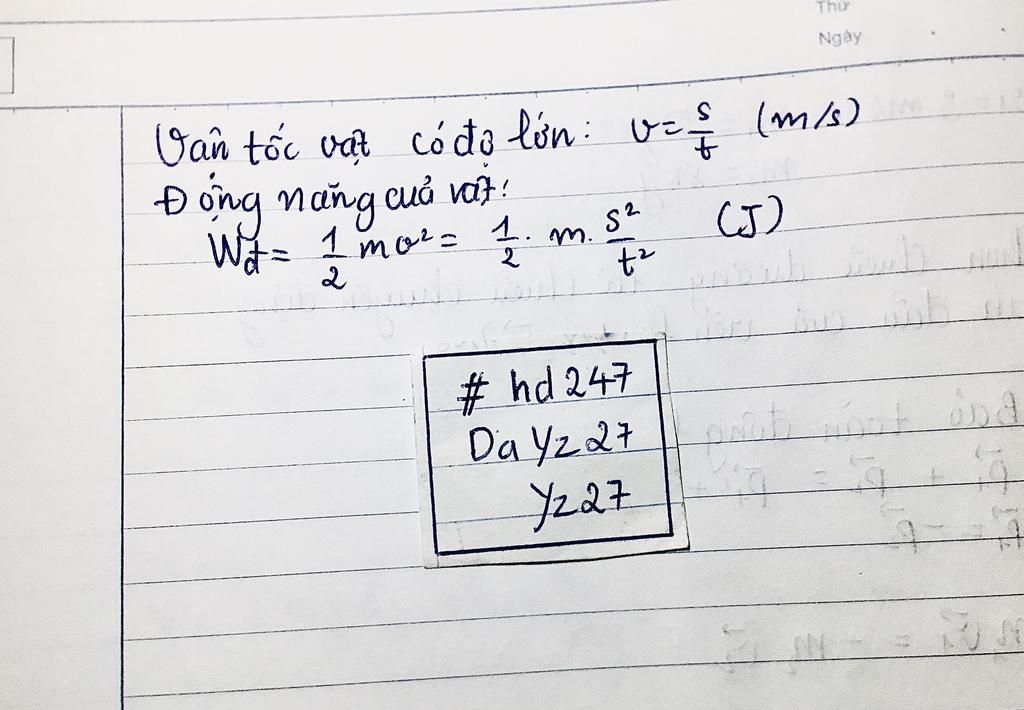 Thứ
Ngày
Vận tốc vật có độ lớn: v = s/t (m/s)
Động năng của vật:
Wđ = 1/2 mv² = 1/2 . m . s²/t² (J)
# hd 247
Da Yz 27
Yz27